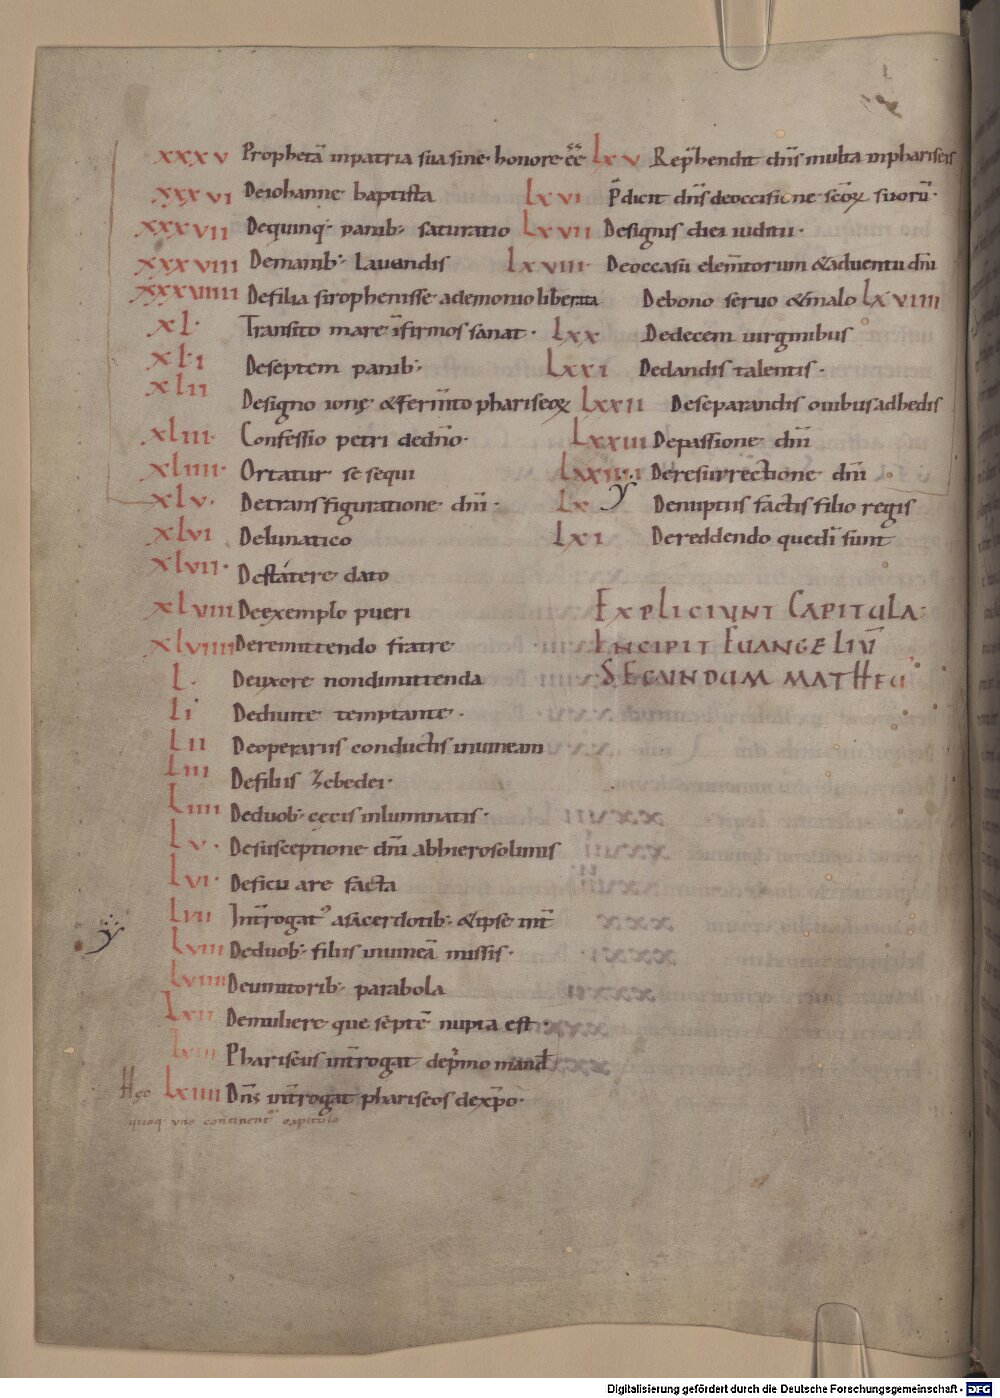 xxxv Prophetā inpatria sua sine honore ēē
xxxvi Deiohanne baptista
xxxvii Dequinq; panib; saturatio
xxxviii Demanib; Lauandis
xxxviiii Defilia sirophenisse ademonio liberata
xl· Transito mare īfirmos sanat·
xli Deseptem panib;
xlii Designo ionę &fermto phariseoꝝ
xliii· Confessio petri dedn̄o·
xliiii· Ortatur se sequi
xlv· Detransfiguratione dn̄i·
xlvi Delunatico
xlvii· Destátere dato
xlviii Deexemplo pueri
xlviiii Deremittendo fratre
L· Deuxore nondimittenda
Li Dediuite temptante·
Lii Deoperariis conductis inuineam
Liii Defiliis Zebedei·
Liiii Deduob; cecis inluminatis·
Lv· Desusceptione dn̄i abhierosolimis
Lvi· Deficu are facta
Lvii Int̄rogat᾽ asacerdotib; &ipse int̄
Lviii Deduob; filiis inuineā missis·
Lviiii Deuinitorib; parabola
Lxii Demuliere que septē nupta est
Lxiii Phariseus int̄rogat dep̄mo mand̄
Lxiiii Dn̄s int̄rogat phariseos dexp̄o·
Hęc
quoq uno continent capitulo
Lxv Rep̄hendit dn̄s multa inphariseis
Lxvi P̄dicit dn̄s deoccisione sc̄oꝝ suorū·
Lxvii Designis diei iuditii·
Lxviii· Deoccasu elem̄torum &aduentu dn̄i
Debono seruo &malo Lxviiii
Lxx Dedecem uirginibus
Lxxi Dedandis talentis·
Lxxii Deseparandis ouibus adhedis
Lxxiii Depassione dn̄i
Lxxiiii· Deresurrectione dn̄i
Lx y Denuptiis factis filio regis
Lxi Dereddendo que dī sunt
EXPLICIUNT CAPITULA·
INCIPIT EUANGELIŪ
SECUNDUM MATHEU
y
Digitalisierung gefördert durch die Deutsche Forschungsgemeinschaft - DFG